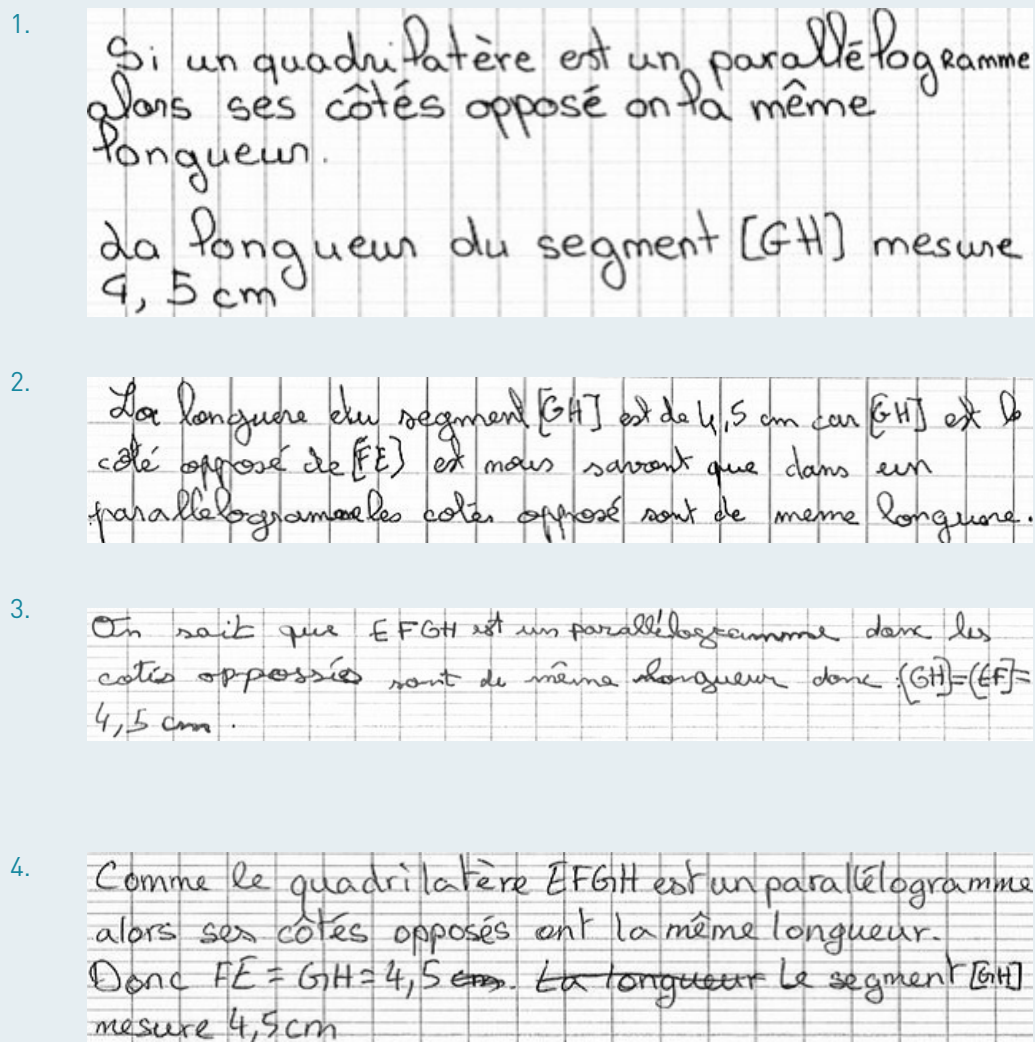 1.
Si un quadrilatère est un parallélogramme
alors ses côtés opposé on la même
longueur.
La longueur du segment [GH] mesure
4,5 cm
2.
La longuere du segment [GH] est de 4,5 cm car [GH] est le
côté opposé de [FE] et nous savont que dans un
parallelogramme les cotés opposé sont de meme longuere.
3.
On sait que EFGH est un parallélogramme donc les
cotés oppossés sont de même longueur donc (GH]=(EF]=
4,5 cm.
4.
Comme le quadrilatère EFGH est un parallélogramme
alors ses côtés opposés ont la même longueur.
Donc FE = GH = 4,5 cm. La longueur Le segment [GH]
mesure 4,5 cm